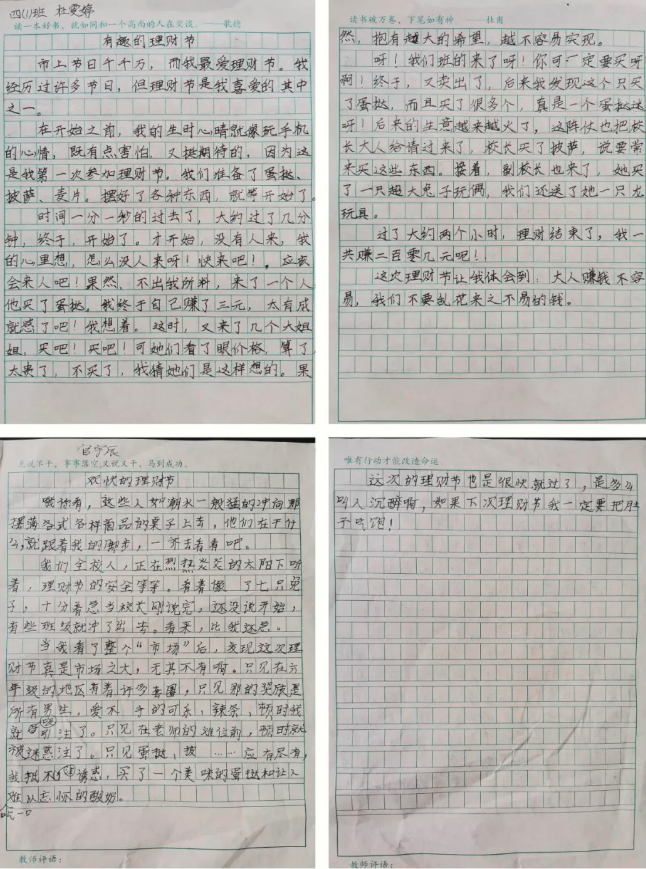 四(1)班 杜雯婷
读一本好书，就如同和一个高尚的人在交谈。——歌德
有趣的理财节
市上节日千千万，而我最爱理财节。我
经历过许多节日，但理财节是我喜爱的其中
之一。
在开始之前，我的生时心情就像玩手机
的心情，既有点害怕，又挺期待的，因为这
是我第一次参加理财节，我们准备了蛋挞、
披萨、麦片。摆好了各种东西，就等开始了。
时间一分一秒的过去了，大约过了几分
钟，终于，开始了。才开始，没有人来，我
的心里想，怎么没人来呀！快来吧！应该
会来人吧！果然，不出我所料，来了一个人
他买了蛋挞，我终于自己赚了三元，太有成
就感了吧！我想着。这时，又来了几个大姐
姐，买吧！买吧！可她们看了眼价格，算了，
太贵了，不买了，我猜她们是这样想的。果
读书破万卷，下笔如有神 ——杜甫
然，抱有越大的希望，越不容易实现。
呀！我们班的来了呀！你可一定要买呀
啊！终于，又卖出了，后来我发现这个只买
了蛋挞，而且买了很多个，真是一个蛋挞迷
呀！后来的生意越来越火了，这阵仗也把校
长大人给请过来了，校长买了披萨，说要常
来买这些东西。接着，副校长也来了，她买
了一只超大兔子玩偶，我们还送了她一只龙
玩具。
过了大约两个小时，理财结束了，我一
共赚二百零几元吧！
这次理财节让我体会到：大人赚钱不容
易，我们不要乱花来之不易的钱。
官宇辰
光说不干，事事落空；又说又干，马到成功。
欢快的理财节
哦你看，这些人如潮水一般猛的冲向那
摆满各式各样商品的桌子上去，他们在干什
么，就跟着我的脚步，一齐去看看吧。
我们全校人，正在烈热炎炎的太阳下听
着，理财节的安全等等。看着像 了七只兔
子，十分着急当校长刚说完，还没说开始，
有些班级就冲了出去。看来，比我还急。
当我看了整个“市场”后，发现这次理
财节真是市场之大，无其不有啊。只见在六
年级的地区有着许多 ，只见别的班级是
所有男生，爱不 手的可乐、辣条，顿时我
就 引 注了。只见在老师的摊位前，顿时就
被迷惑注了。只见蛋挞，披……应有尽有，
我抵不 诱惑，买了一个美味的蛋挞和让人
难以忘怀的酸奶。
一口
教师评语：
唯有行动才能改造命运
这次的理财节也是很快就过了，是多么
别人沉醉啊，如果下次理财节我一定要把肚
子吃饱！
教师评语：